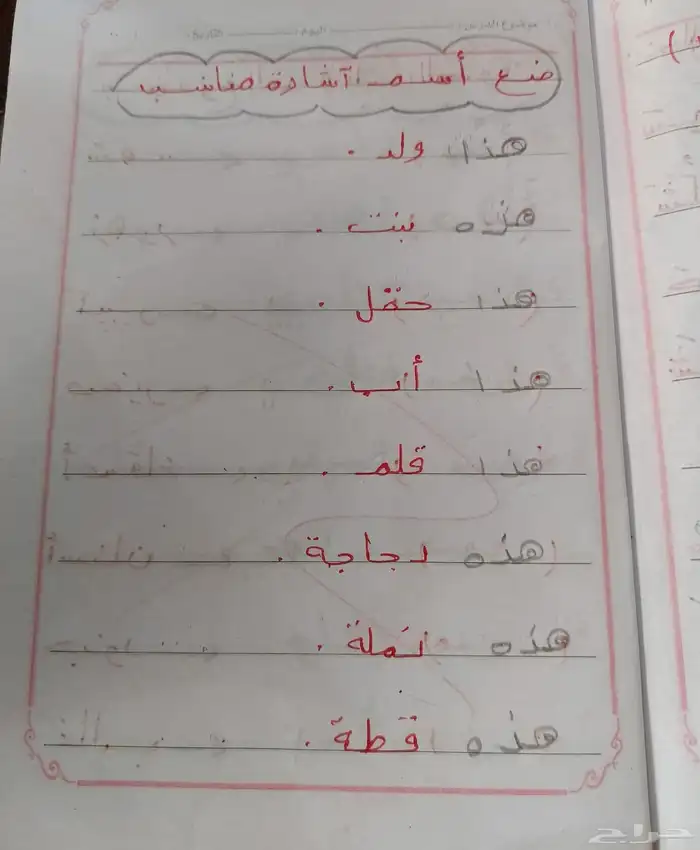 موضوع الدرس اليوم التاريخ
ضع أسم آشارة مناسب
هذا ولد .
هذه بنت .
هذا حقل .
هذا أب .
هذا قلم .
هذه دجاجة .
هذه نملة .
هذه قطة .
حراج